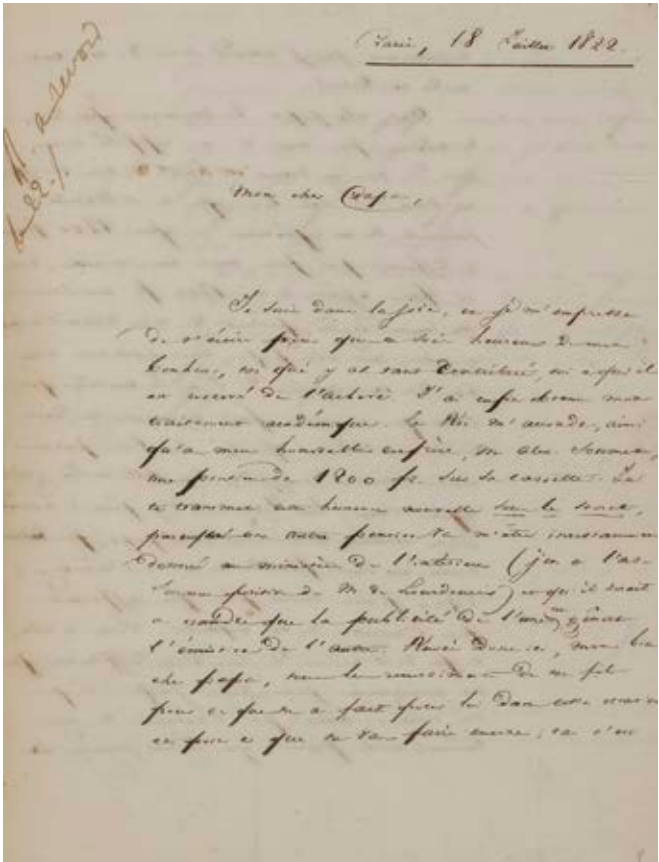 Paris, 18 Juillet 1822.
Mon cher Papa,
Je suis dans la joie, et je m'empresse
de t'écrire pour que tu sois heureux de mon
bonheur, toi qui y as tant contribué, toi à qui il
est réservé de l'achever. J'ai enfin obtenu mon
traitement académique. Le Roi m'accorde, ainsi
qu'à mon honorable confrère, M. Alex. Soumet,
une pension de 1200 fr. sur sa cassette. Je
te transmets cette heureuse nouvelle sous le secret,
parcequ'une autre pension va m'être incessamment
donnée au ministère de l'intérieur (j'en ai l'as-
surance de M. de Lourdoueix) et qu'il serait
à craindre que la publicité de l'une ne gênât
l'émission de l'autre. Reçois donc ici, mon bien
cher papa, tous les remerciements de ton fils
pour ce que tu as fait pour lui dans cette
et pour ce que tu vas faire encore,